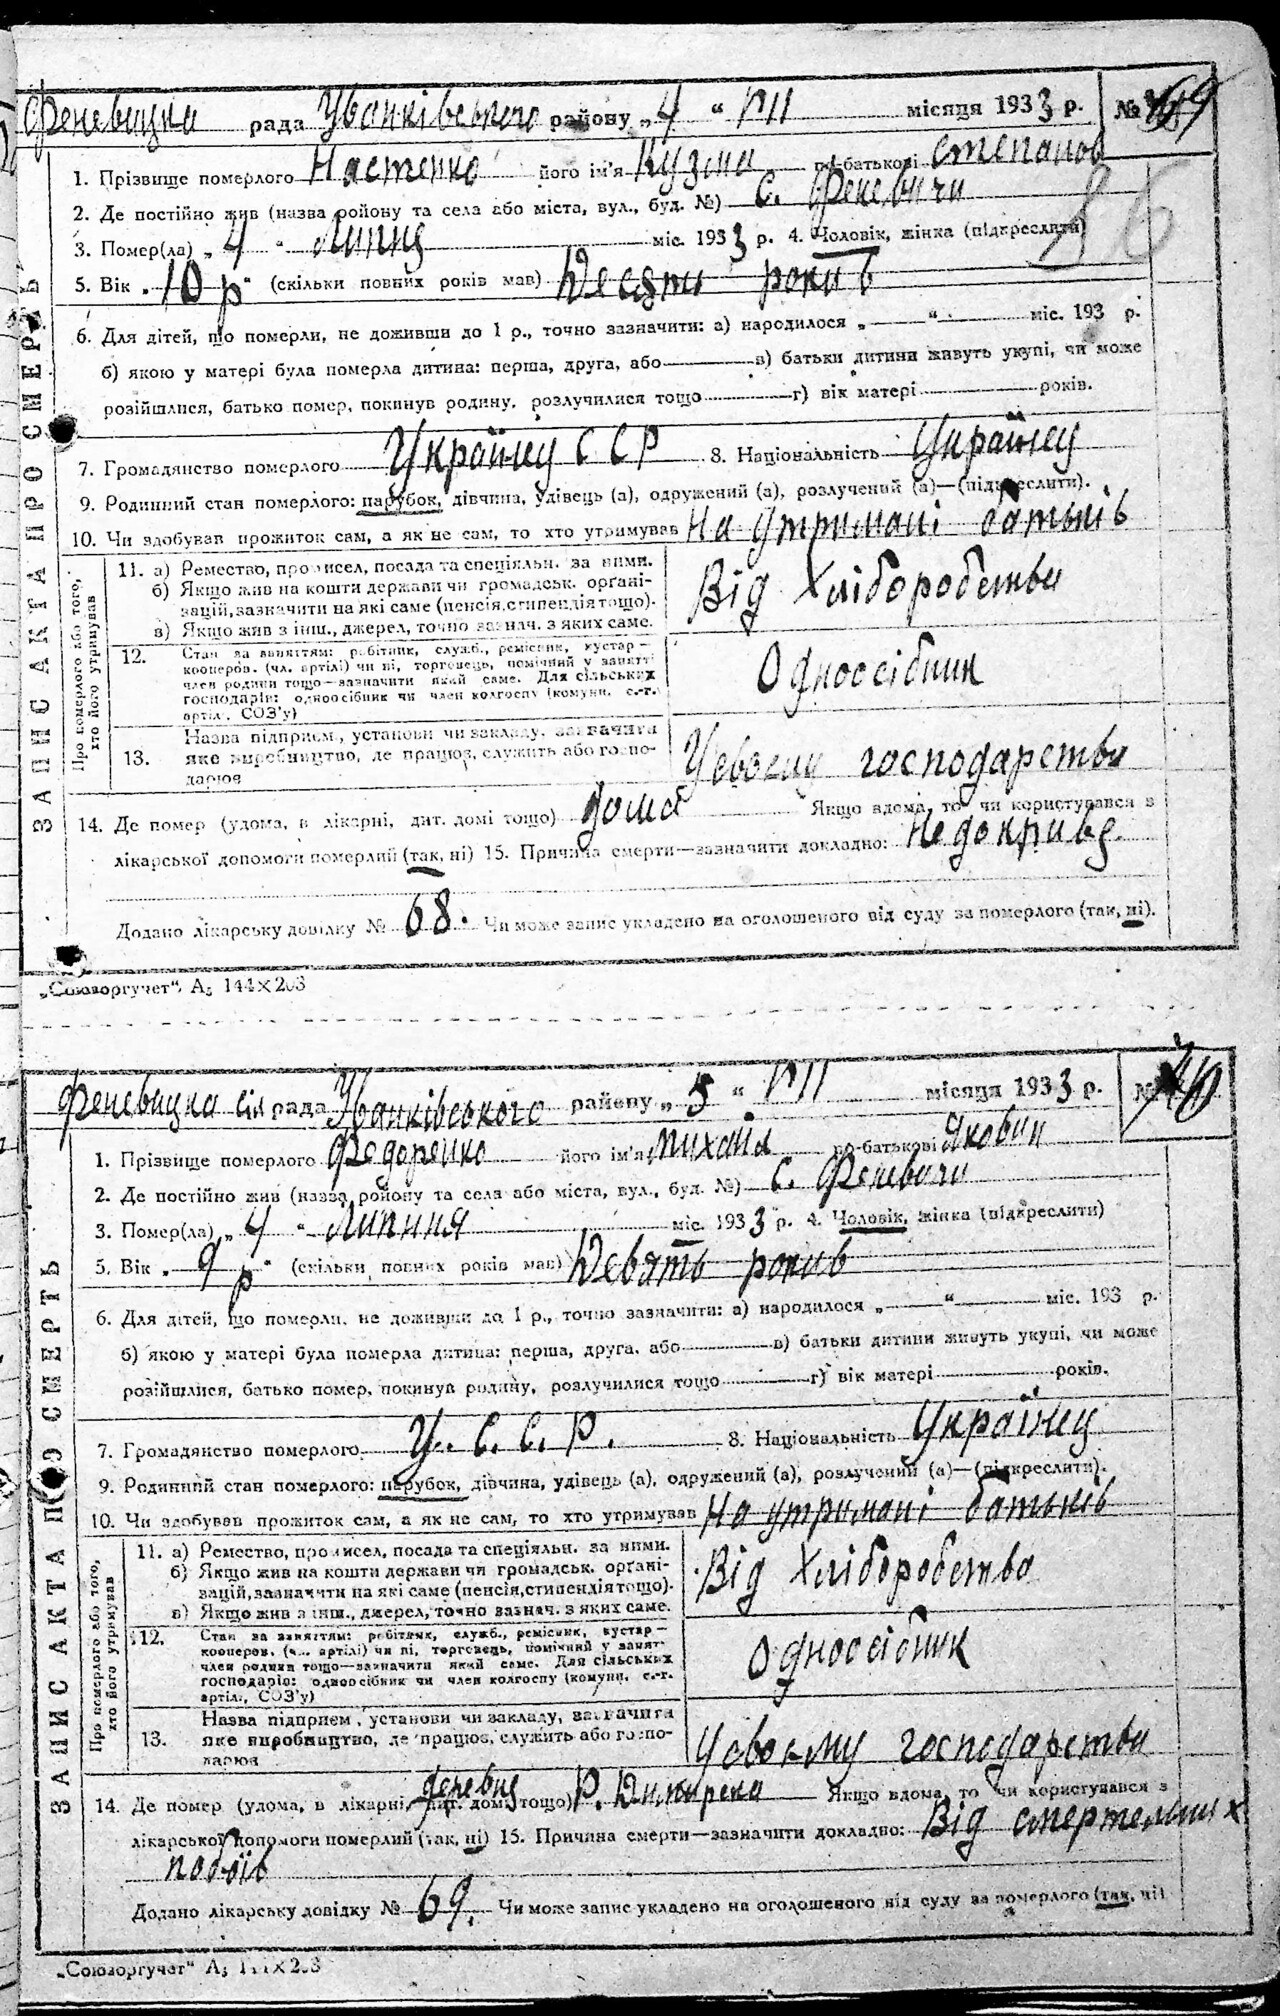 Феневицка рада Уванківського району „4 “ VII місяця 1933 р. № 69
1. Прізвище померлого Настенко його ім'я Кузма по-батькові степанов
2. Де постійно жив (назва району та села або міста, вул., буд. №) с. Феневичи
3. Помер(ла) „ 4 “ Липня міс. 1933 р. 4. Чоловік, жінка (підкреслити)
86
5. Вік „ 10 р “ (скільки повних років мав) Десять років
6. Для дітей, що померли, не доживши до 1 р., точно зазначити: а) народилося „ “ міс. 193 р.
б) якою у матері була померла дитина: перша, друга, або в) батьки дитини живуть укупі, чи може
розійшлися, батько помер, покинув родину, розлучилися тощо г) вік матері років.
7. Громадянство померлого Українец ССР 8. Національність Українец
9. Родинний стан померлого: парубок, дівчина, удівець (а), одружений (а), розлучений (а)—(підкреслити).
10. Чи здобував прожиток сам, а як не сам, то хто утримував На утримані батьків
ЗАПИС АКТА ПРО СМЕРТЬ
Про померлого або того, хто його утримував
11. а) Ремество, промисел, посада та спеціяльн. за ними.
б) Якщо жив на кошти держави чи громадськ. органі-
зацій, зазначити на які саме (пенсія, стипендія тощо).
в) Якщо жив з інш., джерел, точно зазнач. з яких саме.
Від Хліборобства
12. Стан за заняттям: робітник, служб., ремісник, кустар—
кооперов. (чл. артілі) чи ні, торговець, помічний у занятті
член родини тощо—зазначити який саме. Для сільських
господарів: одноосібник чи член колгоспу (комуни, с.-г.
артілі, СОЗ'у)
Одноосібник
13. Назва підприєм., установи чи закладу, зазначити
яке виробництво, де працює, служить або госпо-
дарює
Усвоєму господарстви
14. Де помер (удома, в лікарні, дит. домі тощо) дома Якщо вдома, то чи користувався з
лікарської допомоги померлий (так, ні) 15. Причина смерти—зазначити докладно: недокривя.
Додано лікарську довідку № 68. Чи може запис укладено на оголошеного від суду за померлого (так, ні).
„Союзоргучет“ А5 144×203
Феневицка сіл рада Уванківського району „ 5 “ VII місяця 1933 р. № 70
1. Прізвище померлого Федоренко його ім'я михайл по-батькові Якович
2. Де постійно жив (назва району та села або міста, вул., буд. №) с. Феневичи
3. Помер(ла) „ 4 “ Липння міс. 1933 р. 4. Чоловік, жінка (підкреслити)
5. Вік „ 9 р “ (скільки повних років мав) Девять років
6. Для дітей, що померли, не доживши до 1 р., точно зазначити: а) народилося „ “ міс. 193 р.
б) якою у матері була померла дитина: перша, друга, або в) батьки дитини живуть укупі, чи може
розійшлися, батько помер, покинув родину, розлучилися тощо г) вік матері років.
7. Громадянство померлого У. С. С. Р. 8. Національність Українец
9. Родинний стан померлого: парубок, дівчина, удівець (а), одружений (а), розлучений (а)—(підкреслити).
10. Чи здобував прожиток сам, а як не сам, то хто утримував На утримані батьків
ЗАПИС АКТА ПРО СМЕРТЬ
Про померлого або того, хто його утримував
11. а) Ремество, промисел, посада та спеціяльн. за ними.
б) Якщо жив на кошти держави чи громадськ. органі-
зацій, зазначити на які саме (пенсія, стипендія тощо).
в) Якщо жив з інш., джерел, точно зазнач. з яких саме.
Від Хліборобства
12. Стан за заняттям: робітник, служб., ремісник, кустар—
кооперов. (чл. артілі) чи ні, торговець, помічний у занят
член родини тощо—зазначити який саме. Для сільських
господарів: одноосібник чи член колгоспу (комуни, с.-г.
артілі, СОЗ'у)
Одноосібник
13. Назва підприєм., установи чи закладу, зазначити
яке виробництво, де працює, служить або госпо-
дарює
Усвоєму господарстви
14. Де помер (удома, в лікарні, дит. домі тощо) деревня Р. Дитирека Якщо вдома, то чи користувався з
лікарської допомоги померлий (так, ні) 15. Причина смерти—зазначити докладно: Від смертельних
побоїв
Додано лікарську довідку № 69. Чи може запис укладено на оголошеного від суду за померлого (так, ні)
„Союзоргучет“ А5 144×203